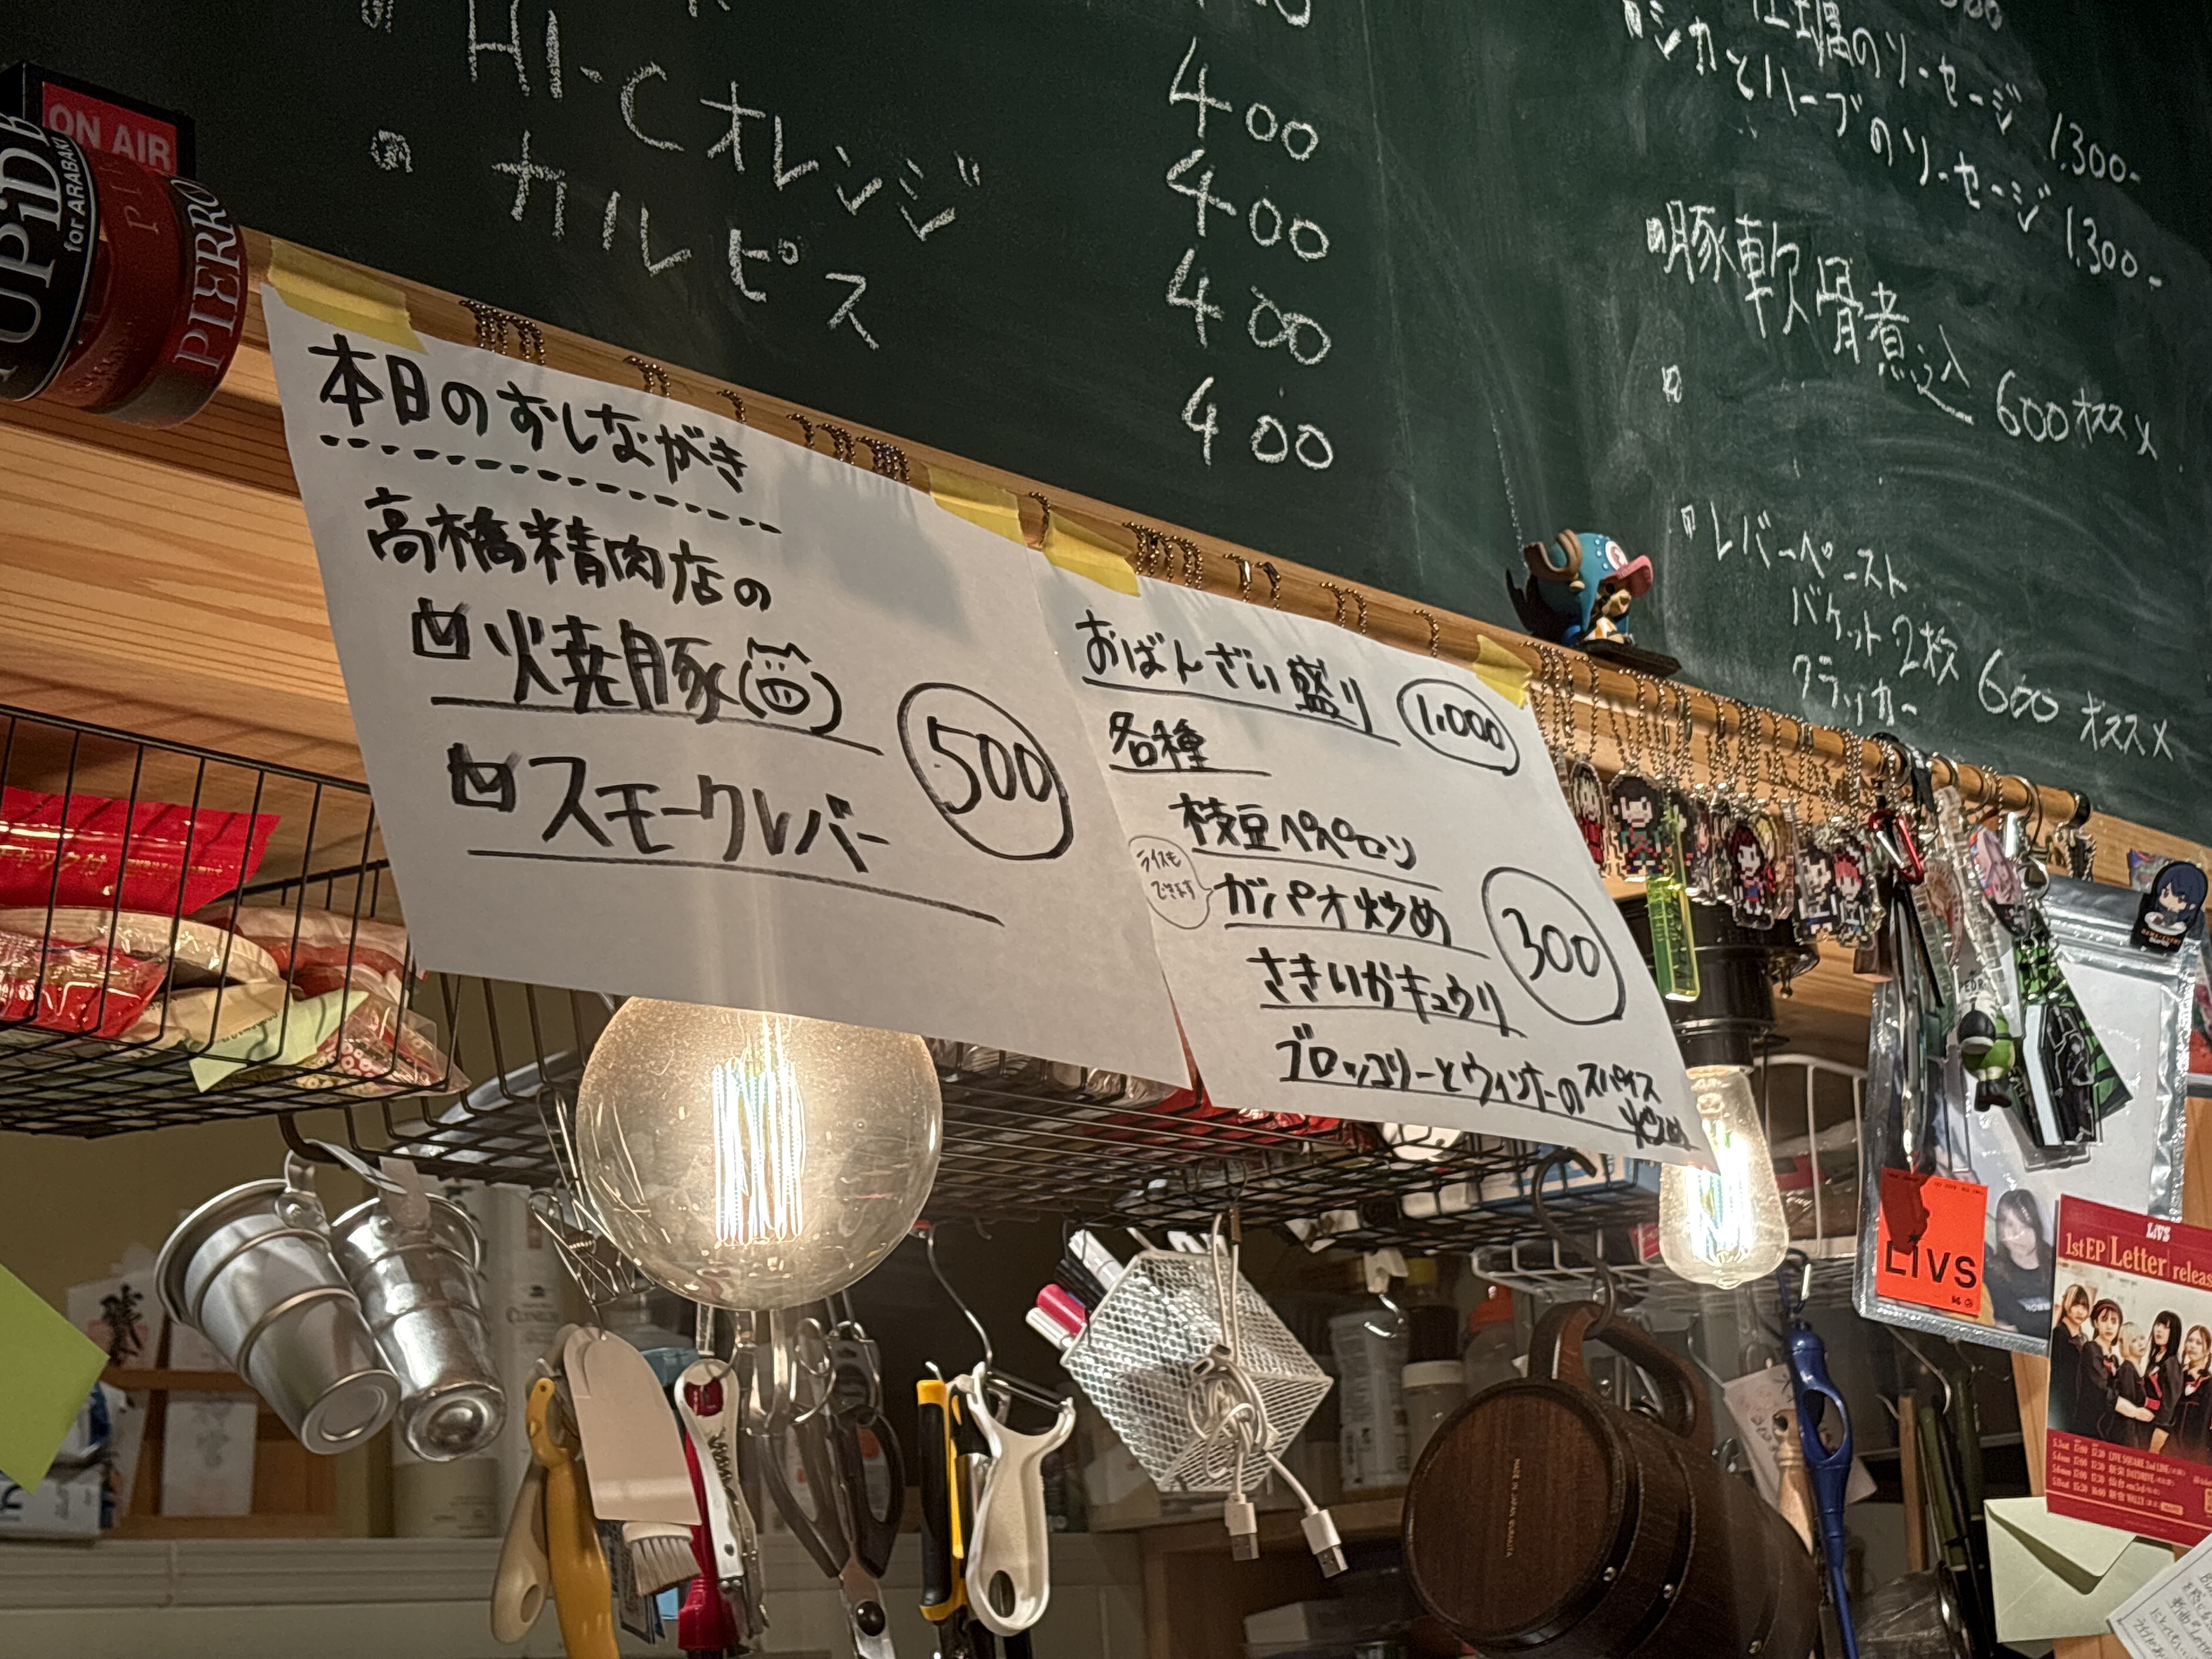 HI-Cオレンジ 400
カルピス 400
400
400
牡蠣のソーセージ 1.300-
シカとハーブのソーセージ 1.300-
豚軟骨煮込 600 オススメ
レバーペースト
バケット2枚 600 オススメ
クラッカー
ON AIR
for ARABAKI
PIERRO
本日のおしながき
高橋精肉店の
焼豚
スモークレバー
500
おばんざい盛り 1.000
各種
枝豆ペペロン
ライスも
できます
ガパオ炒め
さきいかキュウリ
300
ブロッコリーとウィンナーのスパイス
炒め
LIVS
LIVS
1st EP Letter releas